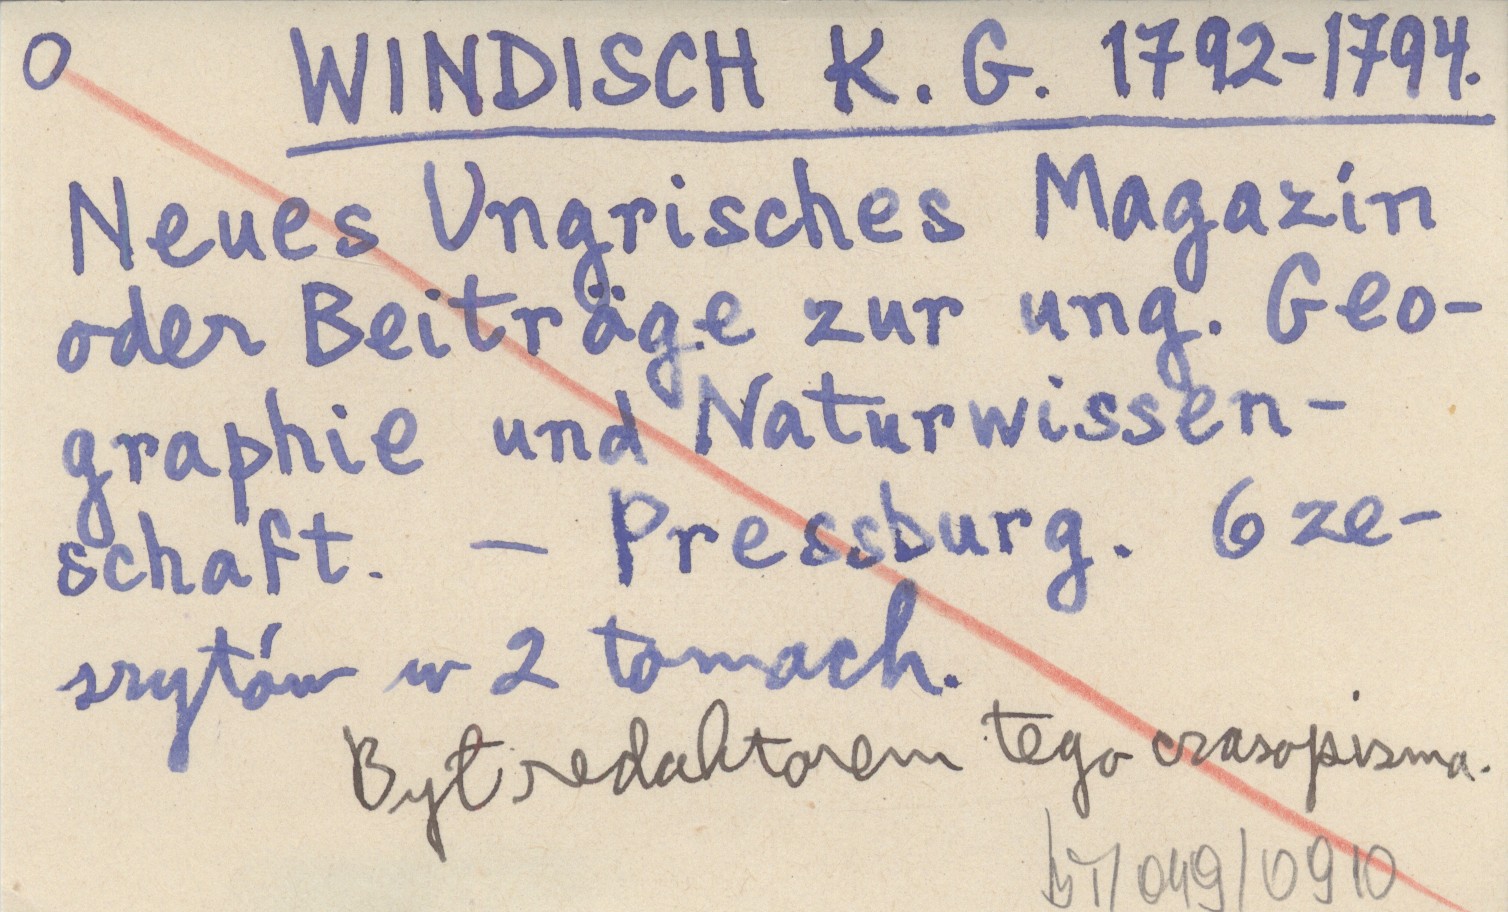 O WINDISCH K. G. 1792-1794.
Neues Ungrisches Magazin
oder Beiträge zur ung. Geo-
graphie und Naturwissen-
schaft. - Pressburg. 6 ze-
szytów w 2 tomach.
Był redaktorem tego czasopisma.
/049/0910